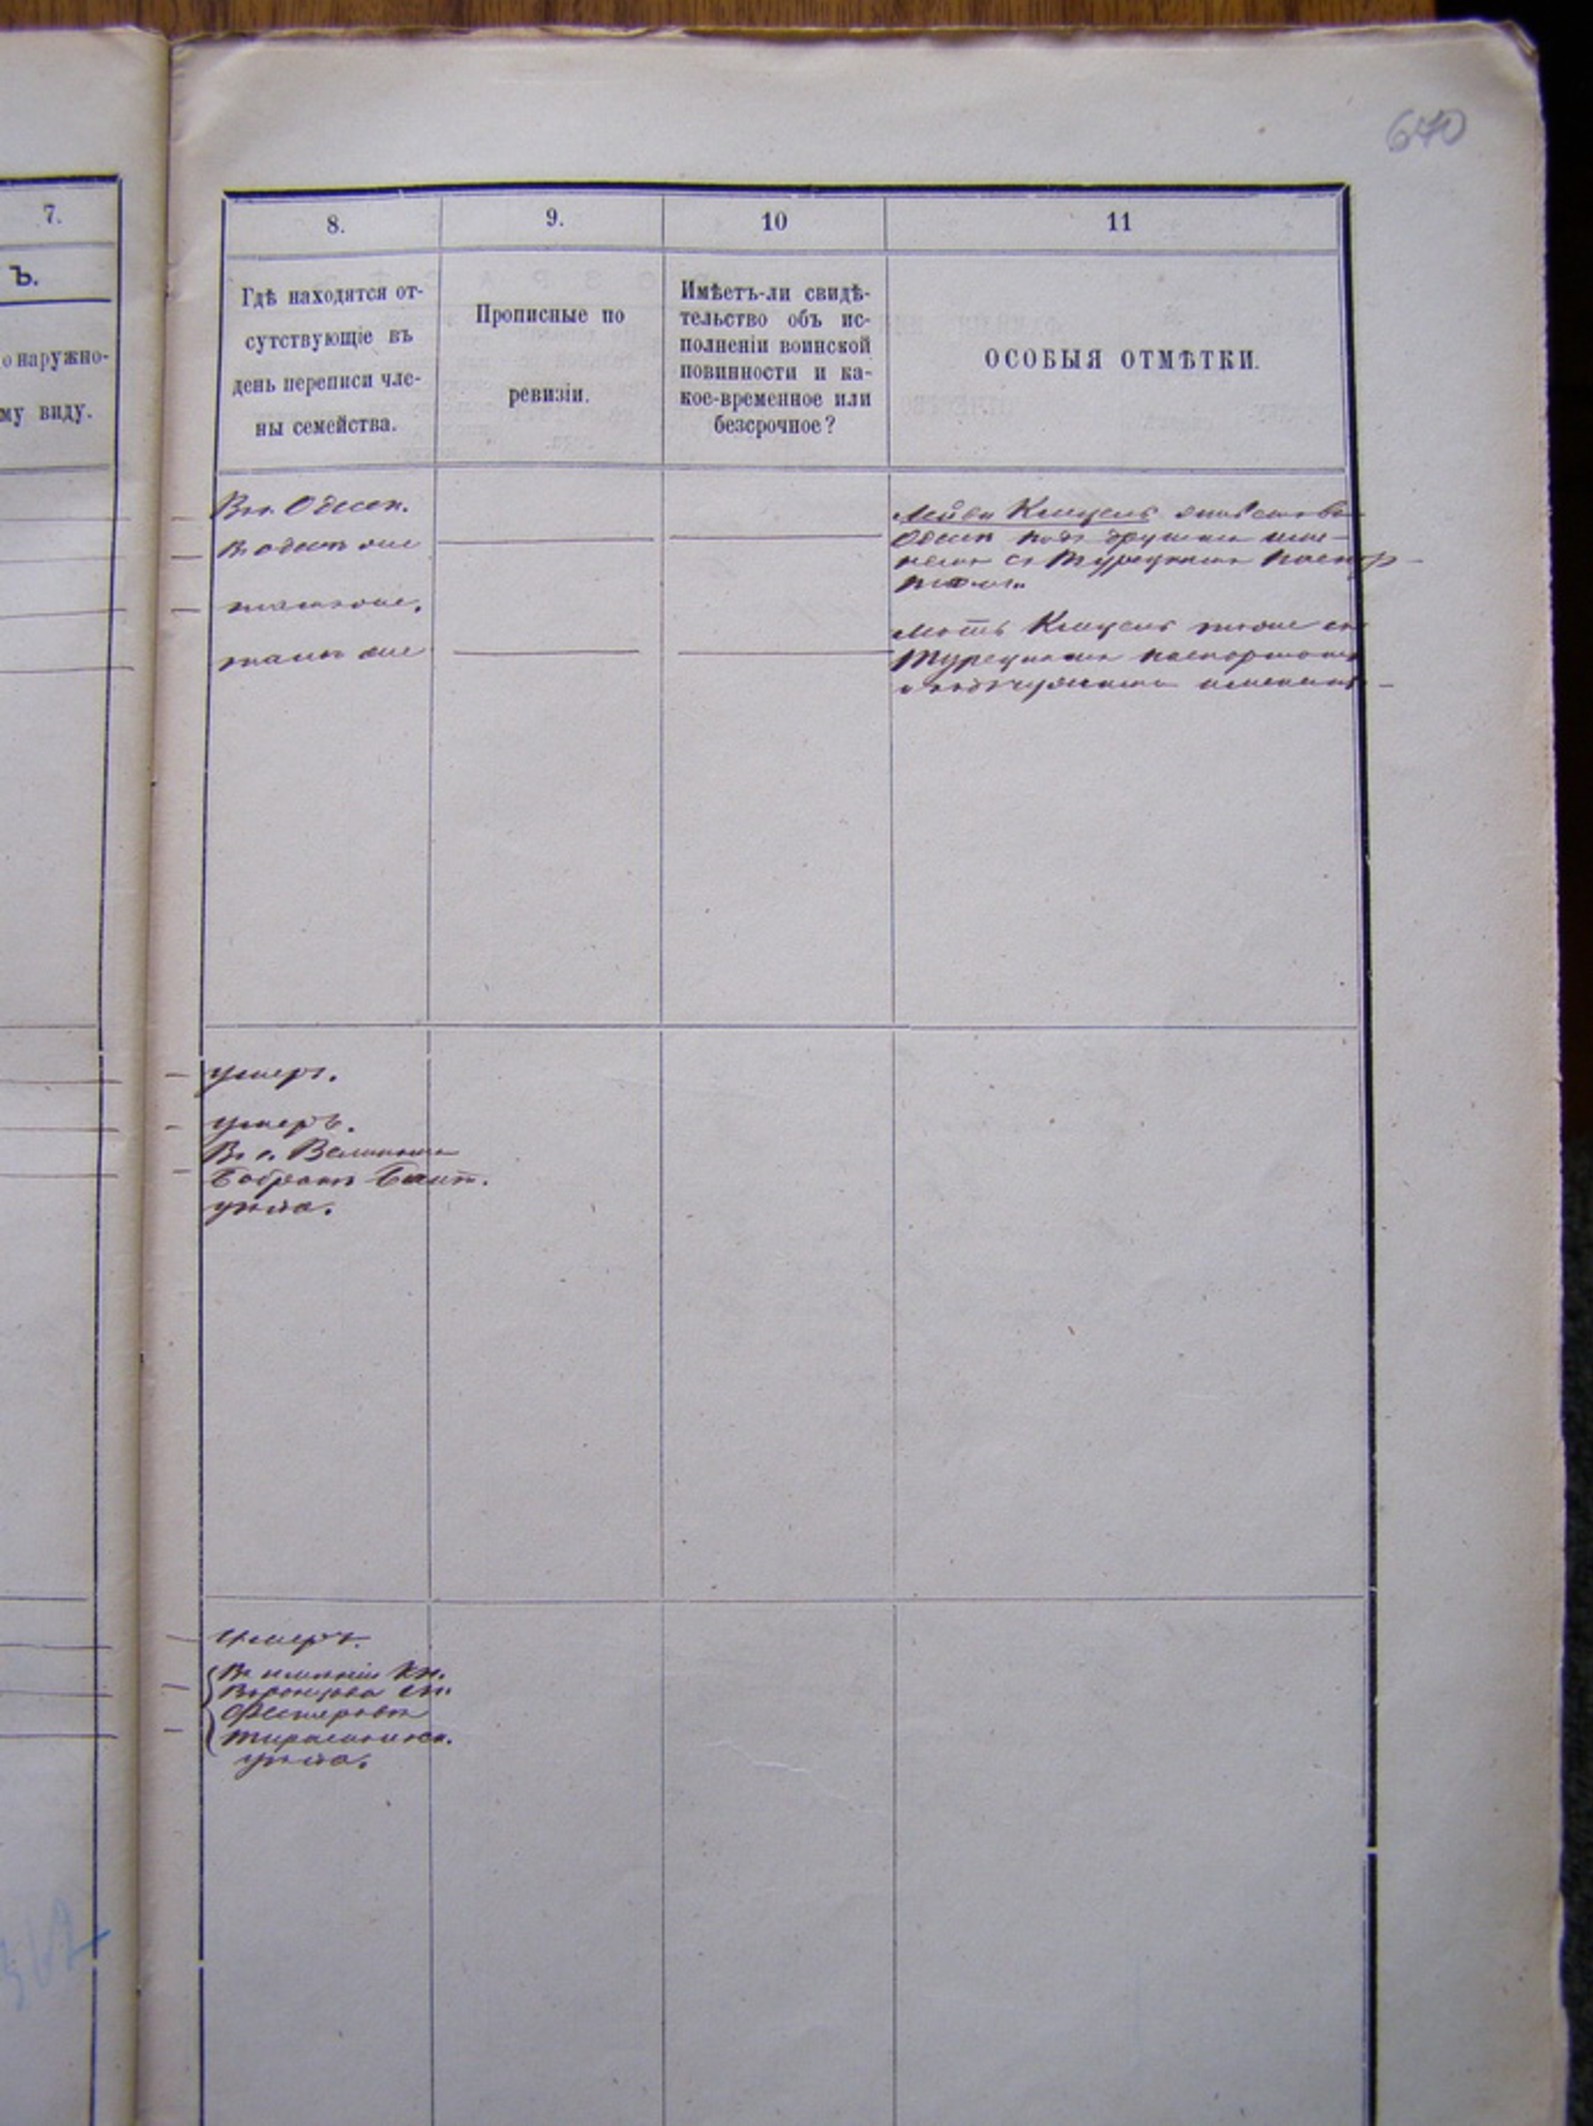 670
7.
Ъ.
о наружно-
му виду.
8.
9.
10
11
Гдѣ находятся от-
сутствующіе въ
день переписи чле-
ны семейства.
Прописные по
ревизіи.
Имѣетъ-ли свидѣ-
тельство объ ис-
полненіи воинской
повинности и ка-
кое-временное или
безсрочное?
ОСОБЫЯ ОТМѢТКИ.
Въ г. Одессѣ.
въ одессѣ же
тамъ же.
тамъ же
Лейба Кицисъ въ
Одессѣ подъ другимъ име-
немъ съ турецкимъ паспор-
томъ.
Мотъ Кицисъ тоже съ
Турецкимъ паспортомъ
и подъ чужимъ именемъ
умеръ.
умеръ.
Въ с.
уѣзда.
умеръ.
Въ имѣніи Кн.
Воронцова
Тираспольск.
уѣзда.